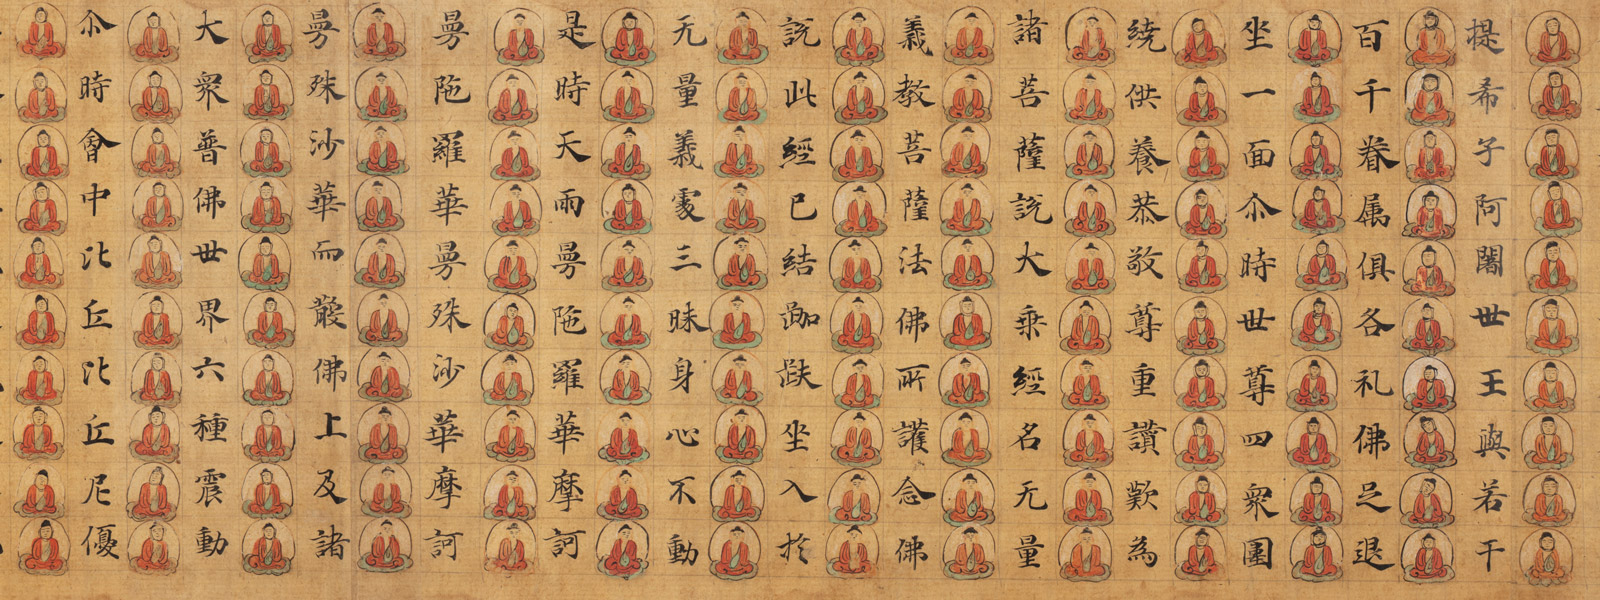 提希子阿闍世王與若干
百千眷属俱各礼佛足退
坐一面尒時世尊四衆圍
繞供養恭敬尊重讚歎為
諸菩薩說大乗經名无量
義教菩薩法佛所護念佛
說此經已結跏趺坐入於
无量義處三昧身心不動
是時天雨曼陁羅華摩訶
曼陁羅華曼殊沙華摩訶
曼殊沙華而散佛上及諸
大衆普佛世界六種震動
尒時會中比丘比丘尼優